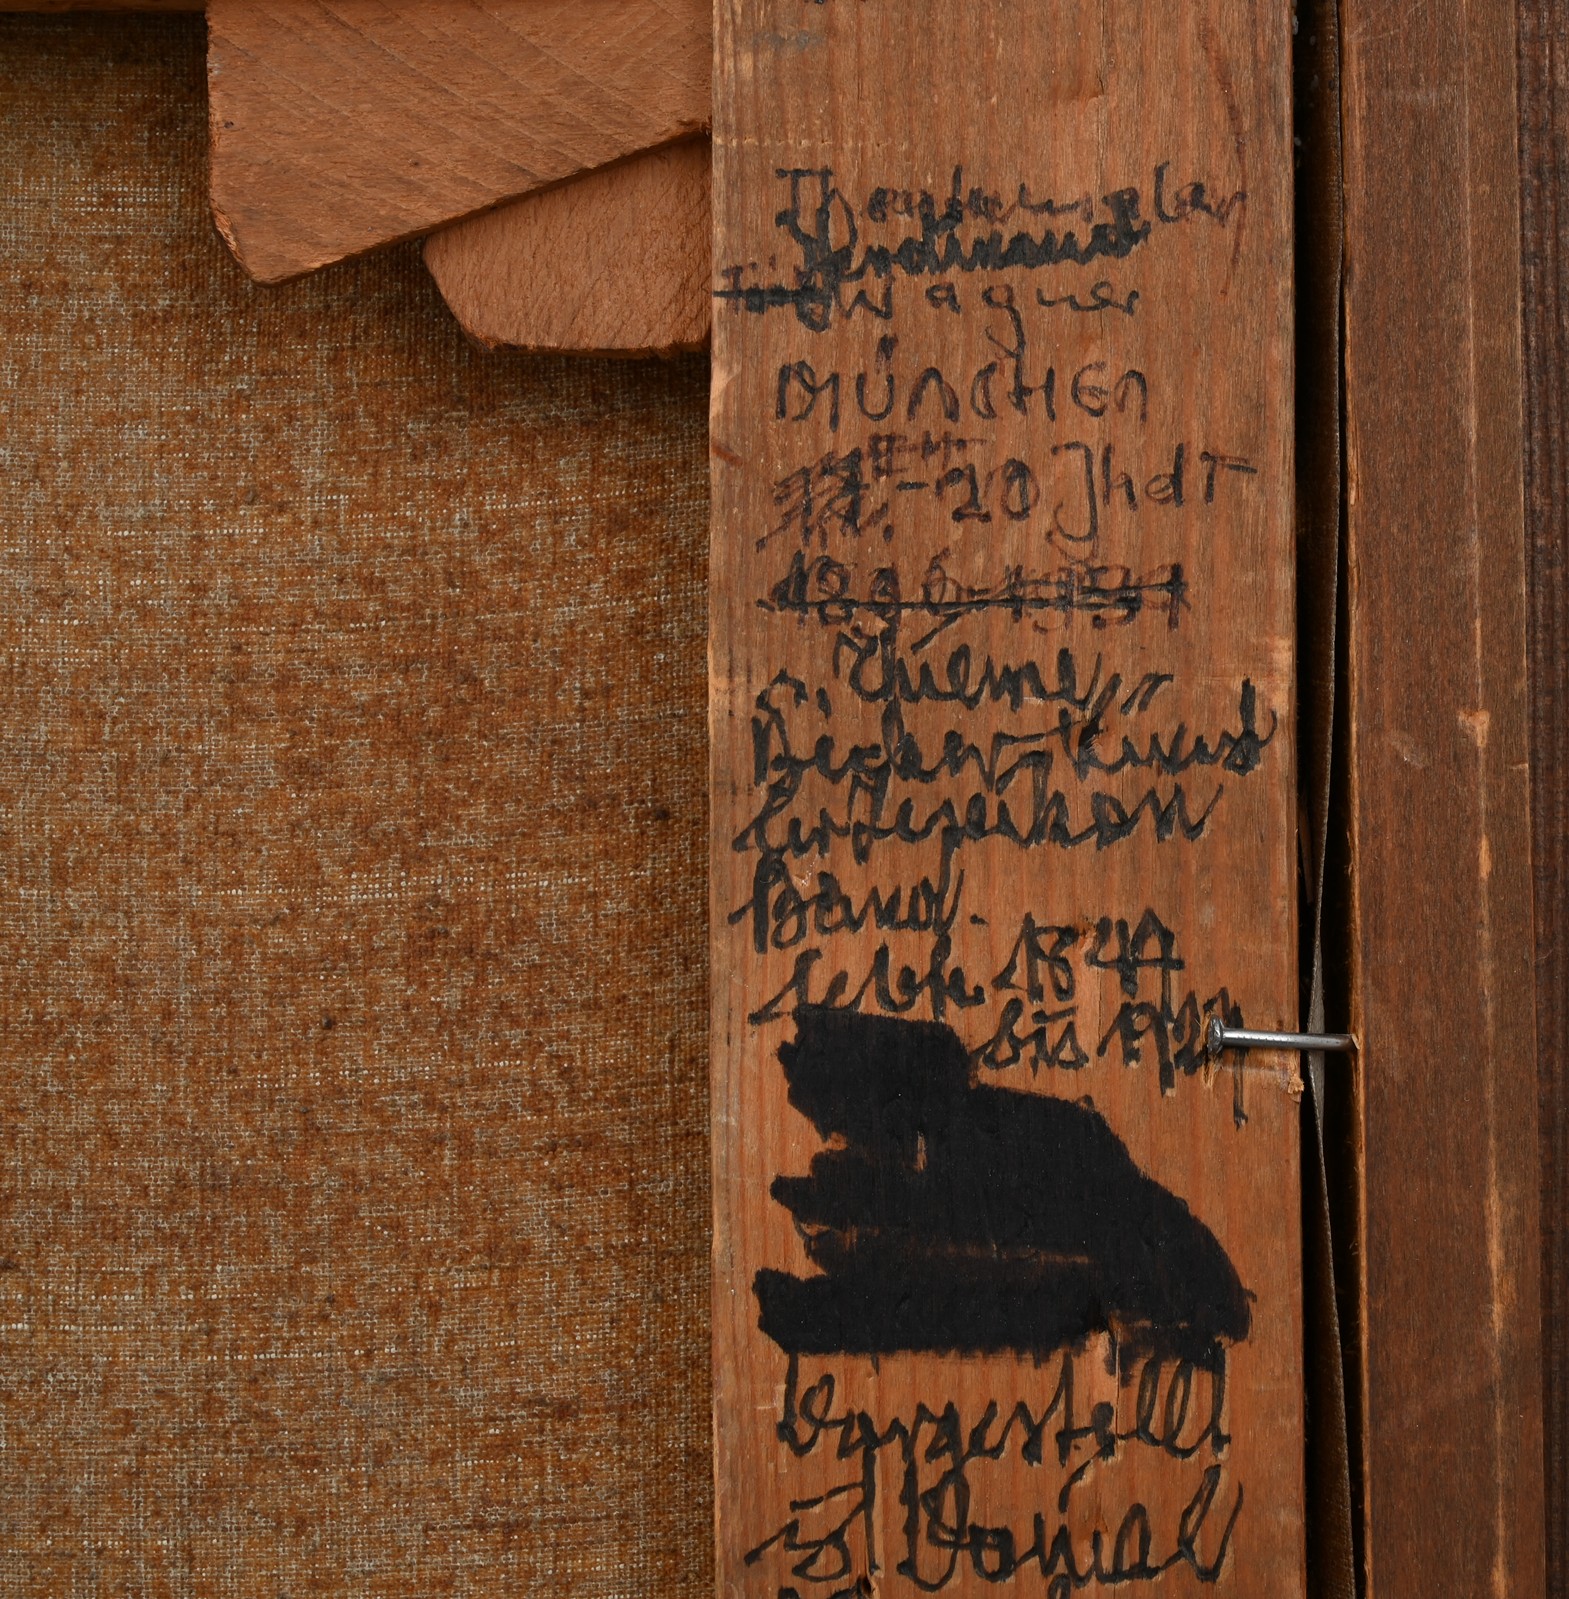 Theatermaler
Ferdinand
Wagner
MÜNCHEN
-20 Jhdt
1896-1931
s. Thieme,
Becker-Kunst
lerlexikon
Band.
lebte 1847
bis 1927
Dargestellt
ist Daniel